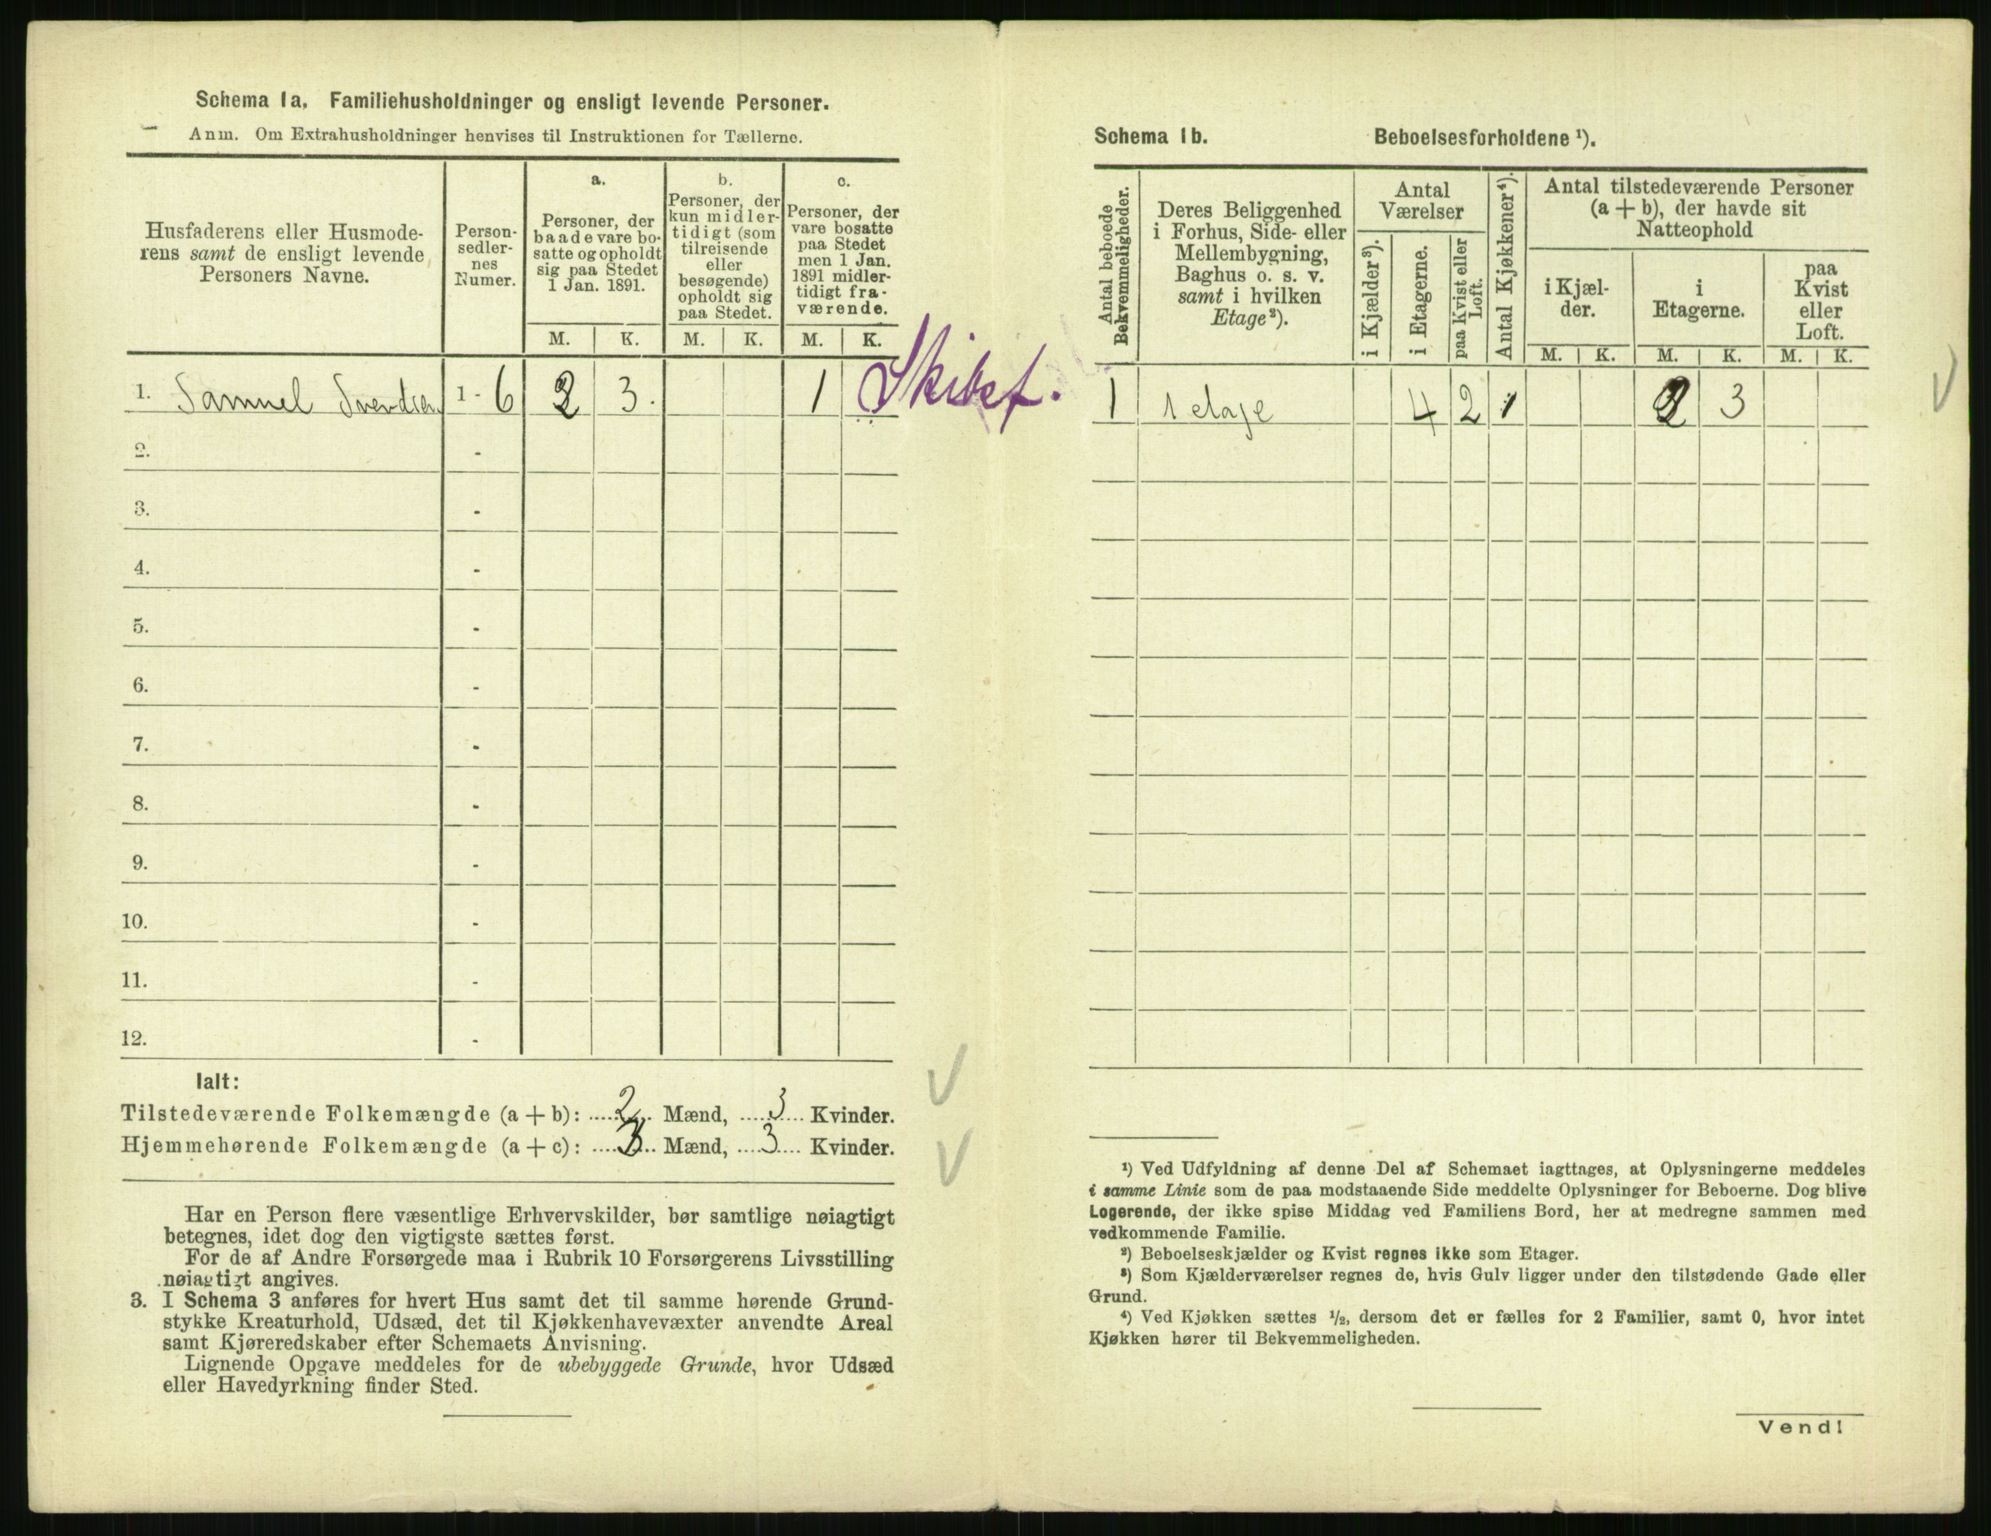 Schema 1a. Familiehusholdninger og ensligt levende Personer.
Anm. Om Extrahusholdninger henvises til Instruktionen for Tællerne.
Husfaderens eller Husmode-
rens samt de ensligt levende
Personers Navne.
Person-
sedler-
nes
Numer.
a.
Personer, der
baade vare bo-
satte og opholdt
sig paa Stedet
1 Jan. 1891.
b.
Personer, der
kun midler-
tidigt (som
tilreisende
eller
besøgende)
opholdt sig
paa Stedet.
c.
Personer, der
vare bosatte
paa Stedet
men 1 Jan.
1891 midler-
tidigt fra-
værende.
M. K. M. K. M. K.
1. Samuel Svendsen 1 - 6 2 3. 1 Skibet.
2. -
3. -
4. -
5. -
6. -
7. -
8. -
9. -
10. -
11. -
12. -
Ialt:
Tilstedeværende Folkemængde (a + b): 2 Mænd, 3 Kvinder.
Hjemmehørende Folkemængde (a + c): 3 Mænd, 3 Kvinder.
Har en Person flere væsentlige Erhvervskilder, bør samtlige nøiagtigt
betegnes, idet dog den vigtigste sættes først.
For de af Andre Forsørgede maa i Rubrik 10 Forsørgerens Livsstilling
nøiagtigt angives.
3. I Schema 3 anføres for hvert Hus samt det til samme hørende Grund-
stykke Kreaturhold, Udsæd, det til Kjøkkenhavevæxter anvendte Areal
samt Kjøreredskaber efter Schemaets Anvisning.
Lignende Opgave meddeles for de ubebyggede Grunde, hvor Udsæd
eller Havedyrkning finder Sted.
Schema 1b. Beboelsesforholdene ¹).
Antal beboede
Bekvemmeligheder.
Deres Beliggenhed
i Forhus, Side- eller
Mellembygning,
Baghus o. s. v.
samt i hvilken
Etage²).
Antal
Værelser
i Kjælder³).
i Etagerne.
paa Kvist eller
Loft.
Antal Kjøkkener⁴).
Antal tilstedeværende Personer
(a + b), der havde sit
Natteophold
i Kjæl-
der.
i
Etagerne.
paa
Kvist
eller
Loft.
M. K. M. K. M. K.
1 1 etage 4 2 1 2 3
¹) Ved Udfyldning af denne Del af Schemaet iagttages, at Oplysningerne meddeles
i samme Linie som de paa modstaaende Side meddelte Oplysninger for Beboerne. Dog blive
Logerende, der ikke spise Middag ved Familiens Bord, her at medregne sammen med
vedkommende Familie.
²) Beboelseskjælder og Kvist regnes ikke som Etager.
³) Som Kjælderværelser regnes de, hvis Gulv ligger under den tilstødende Gade eller
Grund.
⁴) Ved Kjøkken sættes ½, dersom det er fælles for 2 Familier, samt 0, hvor intet
Kjøkken hører til Bekvemmeligheden.
Vend!